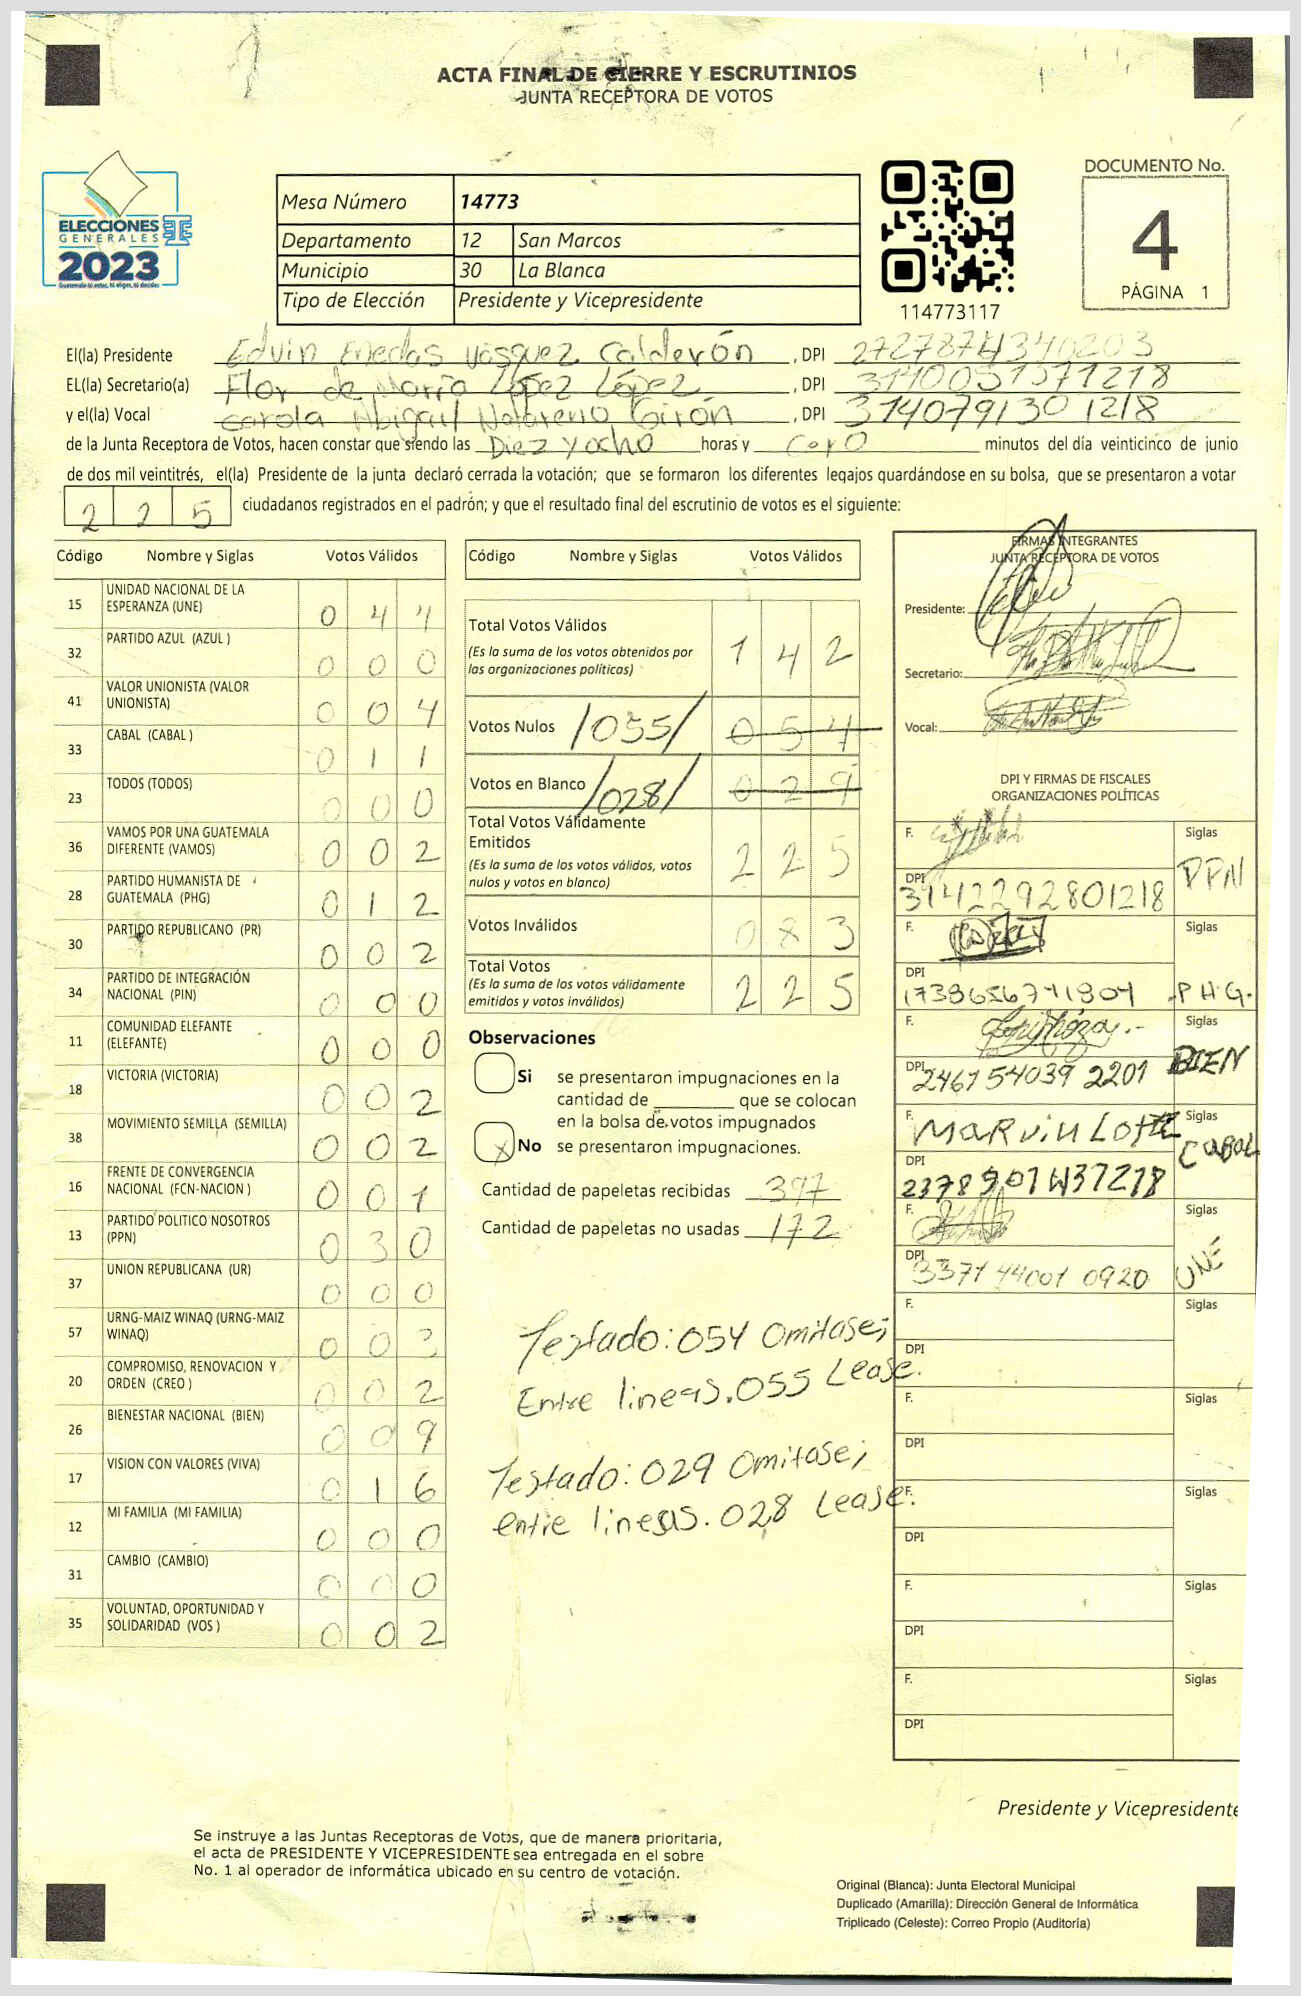 ACTA FINAL DE CIERRE Y ESCRUTINIOS
JUNTA RECEPTORA DE VOTOS
ELECCIONES
GENERALES
2023
Guatemala tú estas, tú eliges, tú decides
Mesa Número 14773
Departamento 12 San Marcos
Municipio 30 La Blanca
Tipo de Elección Presidente y Vicepresidente
114773117
DOCUMENTO No.
4
PÁGINA 1
El(la) Presidente Edvin Eneclas Vásquez Calderón , DPI 2727874340203
EL(la) Secretario(a) Flor de María López López , DPI 3140051571218
y el(la) Vocal Carola Abigail Notareno Girón , DPI 3140791301218
de la Junta Receptora de Votos, hacen constar que siendo las Diez y ocho horas y cero minutos del día veinticinco de junio
de dos mil veintitrés, el(la) Presidente de la junta declaró cerrada la votación; que se formaron los diferentes legajos guardándose en su bolsa, que se presentaron a votar
225 ciudadanos registrados en el padrón; y que el resultado final del escrutinio de votos es el siguiente:
Código Nombre y Siglas Votos Válidos
15 UNIDAD NACIONAL DE LA
ESPERANZA (UNE) 0 4 4
32 PARTIDO AZUL (AZUL ) 0 0 0
41 VALOR UNIONISTA (VALOR
UNIONISTA) 0 0 4
33 CABAL (CABAL ) 0 1 1
23 TODOS (TODOS) 0 0 0
36 VAMOS POR UNA GUATEMALA
DIFERENTE (VAMOS) 0 0 2
28 PARTIDO HUMANISTA DE
GUATEMALA (PHG) 0 1 2
30 PARTIDO REPUBLICANO (PR) 0 0 2
34 PARTIDO DE INTEGRACIÓN
NACIONAL (PIN) 0 0 0
11 COMUNIDAD ELEFANTE
(ELEFANTE) 0 0 0
18 VICTORIA (VICTORIA) 0 0 2
38 MOVIMIENTO SEMILLA (SEMILLA) 0 0 2
16 FRENTE DE CONVERGENCIA
NACIONAL (FCN-NACION ) 0 0 1
13 PARTIDO POLITICO NOSOTROS
(PPN) 0 3 0
37 UNION REPUBLICANA (UR) 0 0 0
57 URNG-MAIZ WINAQ (URNG-MAIZ
WINAQ) 0 0 3
20 COMPROMISO, RENOVACION Y
ORDEN (CREO ) 0 0 2
26 BIENESTAR NACIONAL (BIEN) 0 0 9
17 VISION CON VALORES (VIVA) 0 1 6
12 MI FAMILIA (MI FAMILIA) 0 0 0
31 CAMBIO (CAMBIO) 0 0 0
35 VOLUNTAD, OPORTUNIDAD Y
SOLIDARIDAD (VOS ) 0 0 2
Código Nombre y Siglas Votos Válidos
Total Votos Válidos
(Es la suma de los votos obtenidos por
las organizaciones políticas) 1 4 2
Votos Nulos /055/ 0 5 4
Votos en Blanco /028/ 0 2 9
Total Votos Válidamente
Emitidos
(Es la suma de los votos válidos, votos
nulos y votos en blanco) 2 2 5
Votos Inválidos 0 8 3
Total Votos
(Es la suma de los votos válidamente
emitidos y votos inválidos) 2 2 5
Observaciones
Si se presentaron impugnaciones en la
cantidad de ________ que se colocan
en la bolsa de votos impugnados
x No se presentaron impugnaciones.
Cantidad de papeletas recibidas 397
Cantidad de papeletas no usadas 172
Testado: 054 Omitase;
Entre lineas. 055 Lease.
Testado: 029 Omitase;
entre lineas. 028 Lease.
FIRMAS INTEGRANTES
JUNTA RECEPTORA DE VOTOS
Presidente:
Secretario:
Vocal:
DPI Y FIRMAS DE FISCALES
ORGANIZACIONES POLÍTICAS
F. Siglas
DPI 3142292801218 PPN
F. Siglas
DPI 1738656741804 P.H.G.
F. Siglas
DPI 2467540392201 BIEN
F. MARViN LOTZ Siglas
DPI CABAL
F. Siglas
DPI 3371440010920 UNE
F. Siglas
DPI
F. Siglas
DPI
F. Siglas
DPI
F. Siglas
DPI
F. Siglas
DPI
Presidente y Vicepresidente
Se instruye a las Juntas Receptoras de Votos, que de manera prioritaria,
el acta de PRESIDENTE Y VICEPRESIDENTE sea entregada en el sobre
No. 1 al operador de informática ubicado en su centro de votación.
Original (Blanca): Junta Electoral Municipal
Duplicado (Amarilla): Dirección General de Informática
Triplicado (Celeste): Correo Propio (Auditoría)